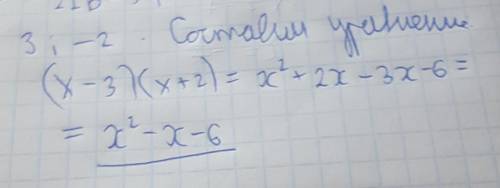 3; -2. Составим уравнение.
(x-3)(x+2) = x² + 2x - 3x - 6 =
= x² - x - 6